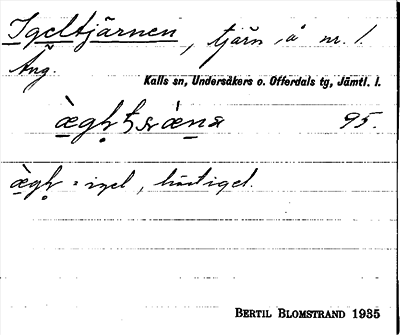 Igeltjärnen, tjärn, å nr. 1.
Äng.
Kalls sn, Undersåkers o. Offerdals tg, Jämtl. l.
95.
= igel, hästigel.
BERTIL BLOMSTRAND 1935